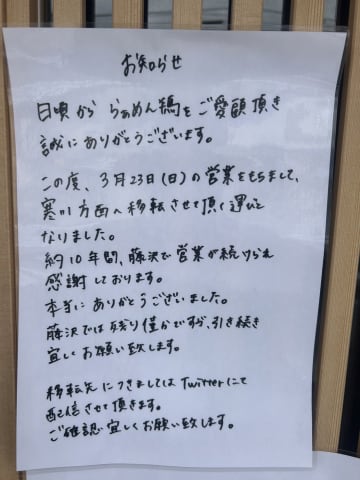 お知らせ
日頃から らぁめん鶴をご愛顧頂き
誠にありがとうございます。
この度、3月23日(日)の営業をもちまして、
寒川方面へ移転させて頂く運びと
なりました。
約10年間、藤沢で営業が続けられ
感謝しております。
本当にありがとうございました。
藤沢では残り僅かですが、引き続き
宜しくお願い致します。
移転先につきましてはTwitterにて
配信させて頂きます。
ご確認宜しくお願い致します。